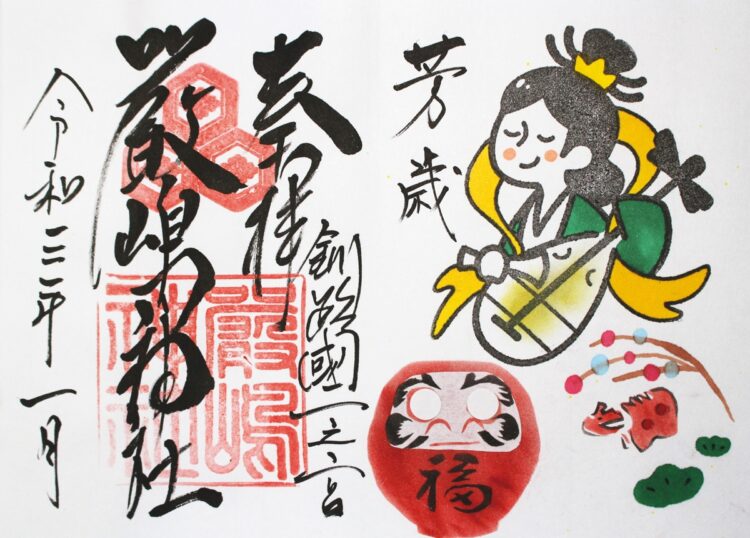 芳歳
奉拝
釧路國一之宮
厳嶋神社
令和三年一月
嚴嶋神社
福